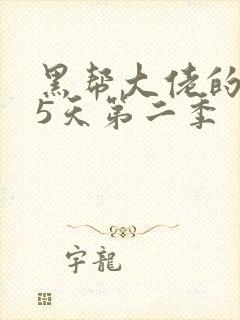 黑帮大佬的
5天第二季
宇龍